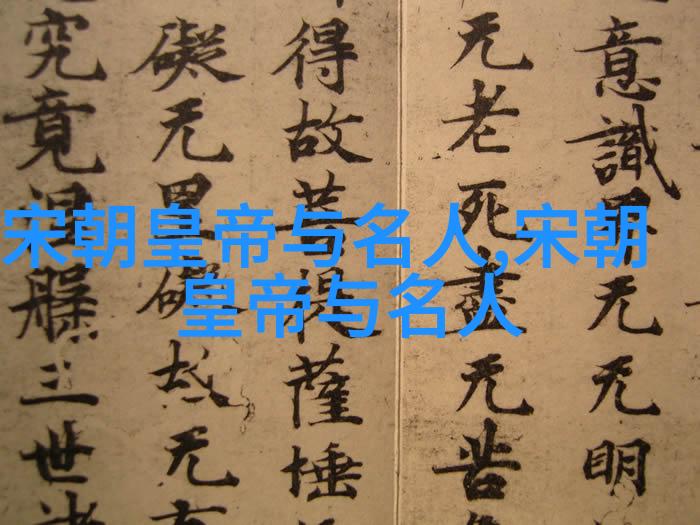 宋朝皇帝与名人,宋朝
皇帝与名人
意識界无无明
无老死盡无苦
得故菩提薩埵
礙无罣礙故无有
究竟涅槃三世諸